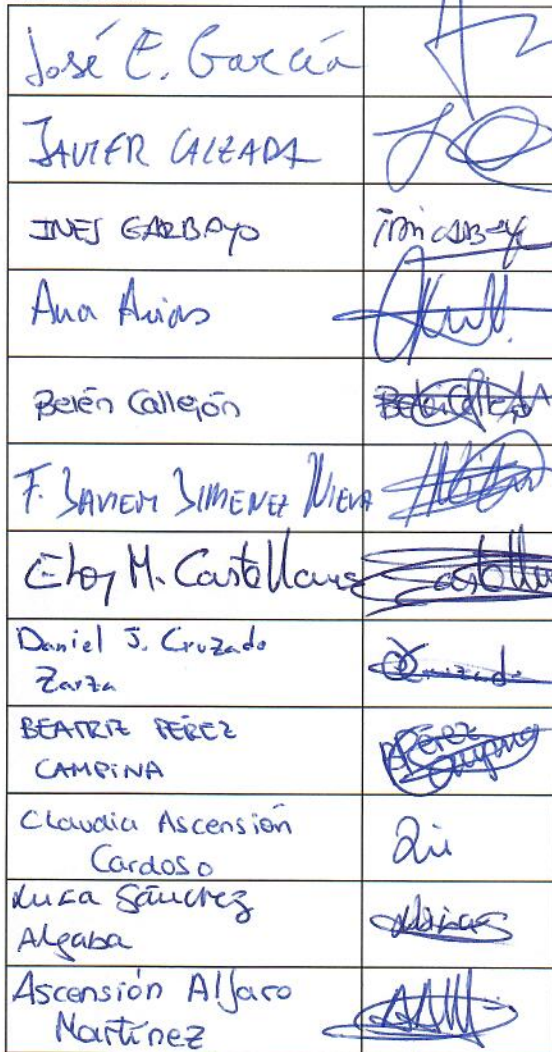 José E. García
JAVIER CALZADA
INES GARBAYO
Ana Arias
Belén Callejón
F. JAVIER JIMENEZ NIEVA
Eloy M. Castellanos
Daniel J. Cruzado
Zarza
BEATRIZ PÉREZ
CAMPINA
Pérez
Campina
Claudia Ascensión
Cardoso
Sánchez
Algaba
Ascensión Alfaro
Martínez